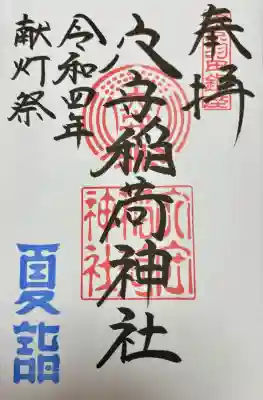 奉拝
穴守稲荷神社
令和四年
献灯祭
夏詣
穴守
稲荷
神社